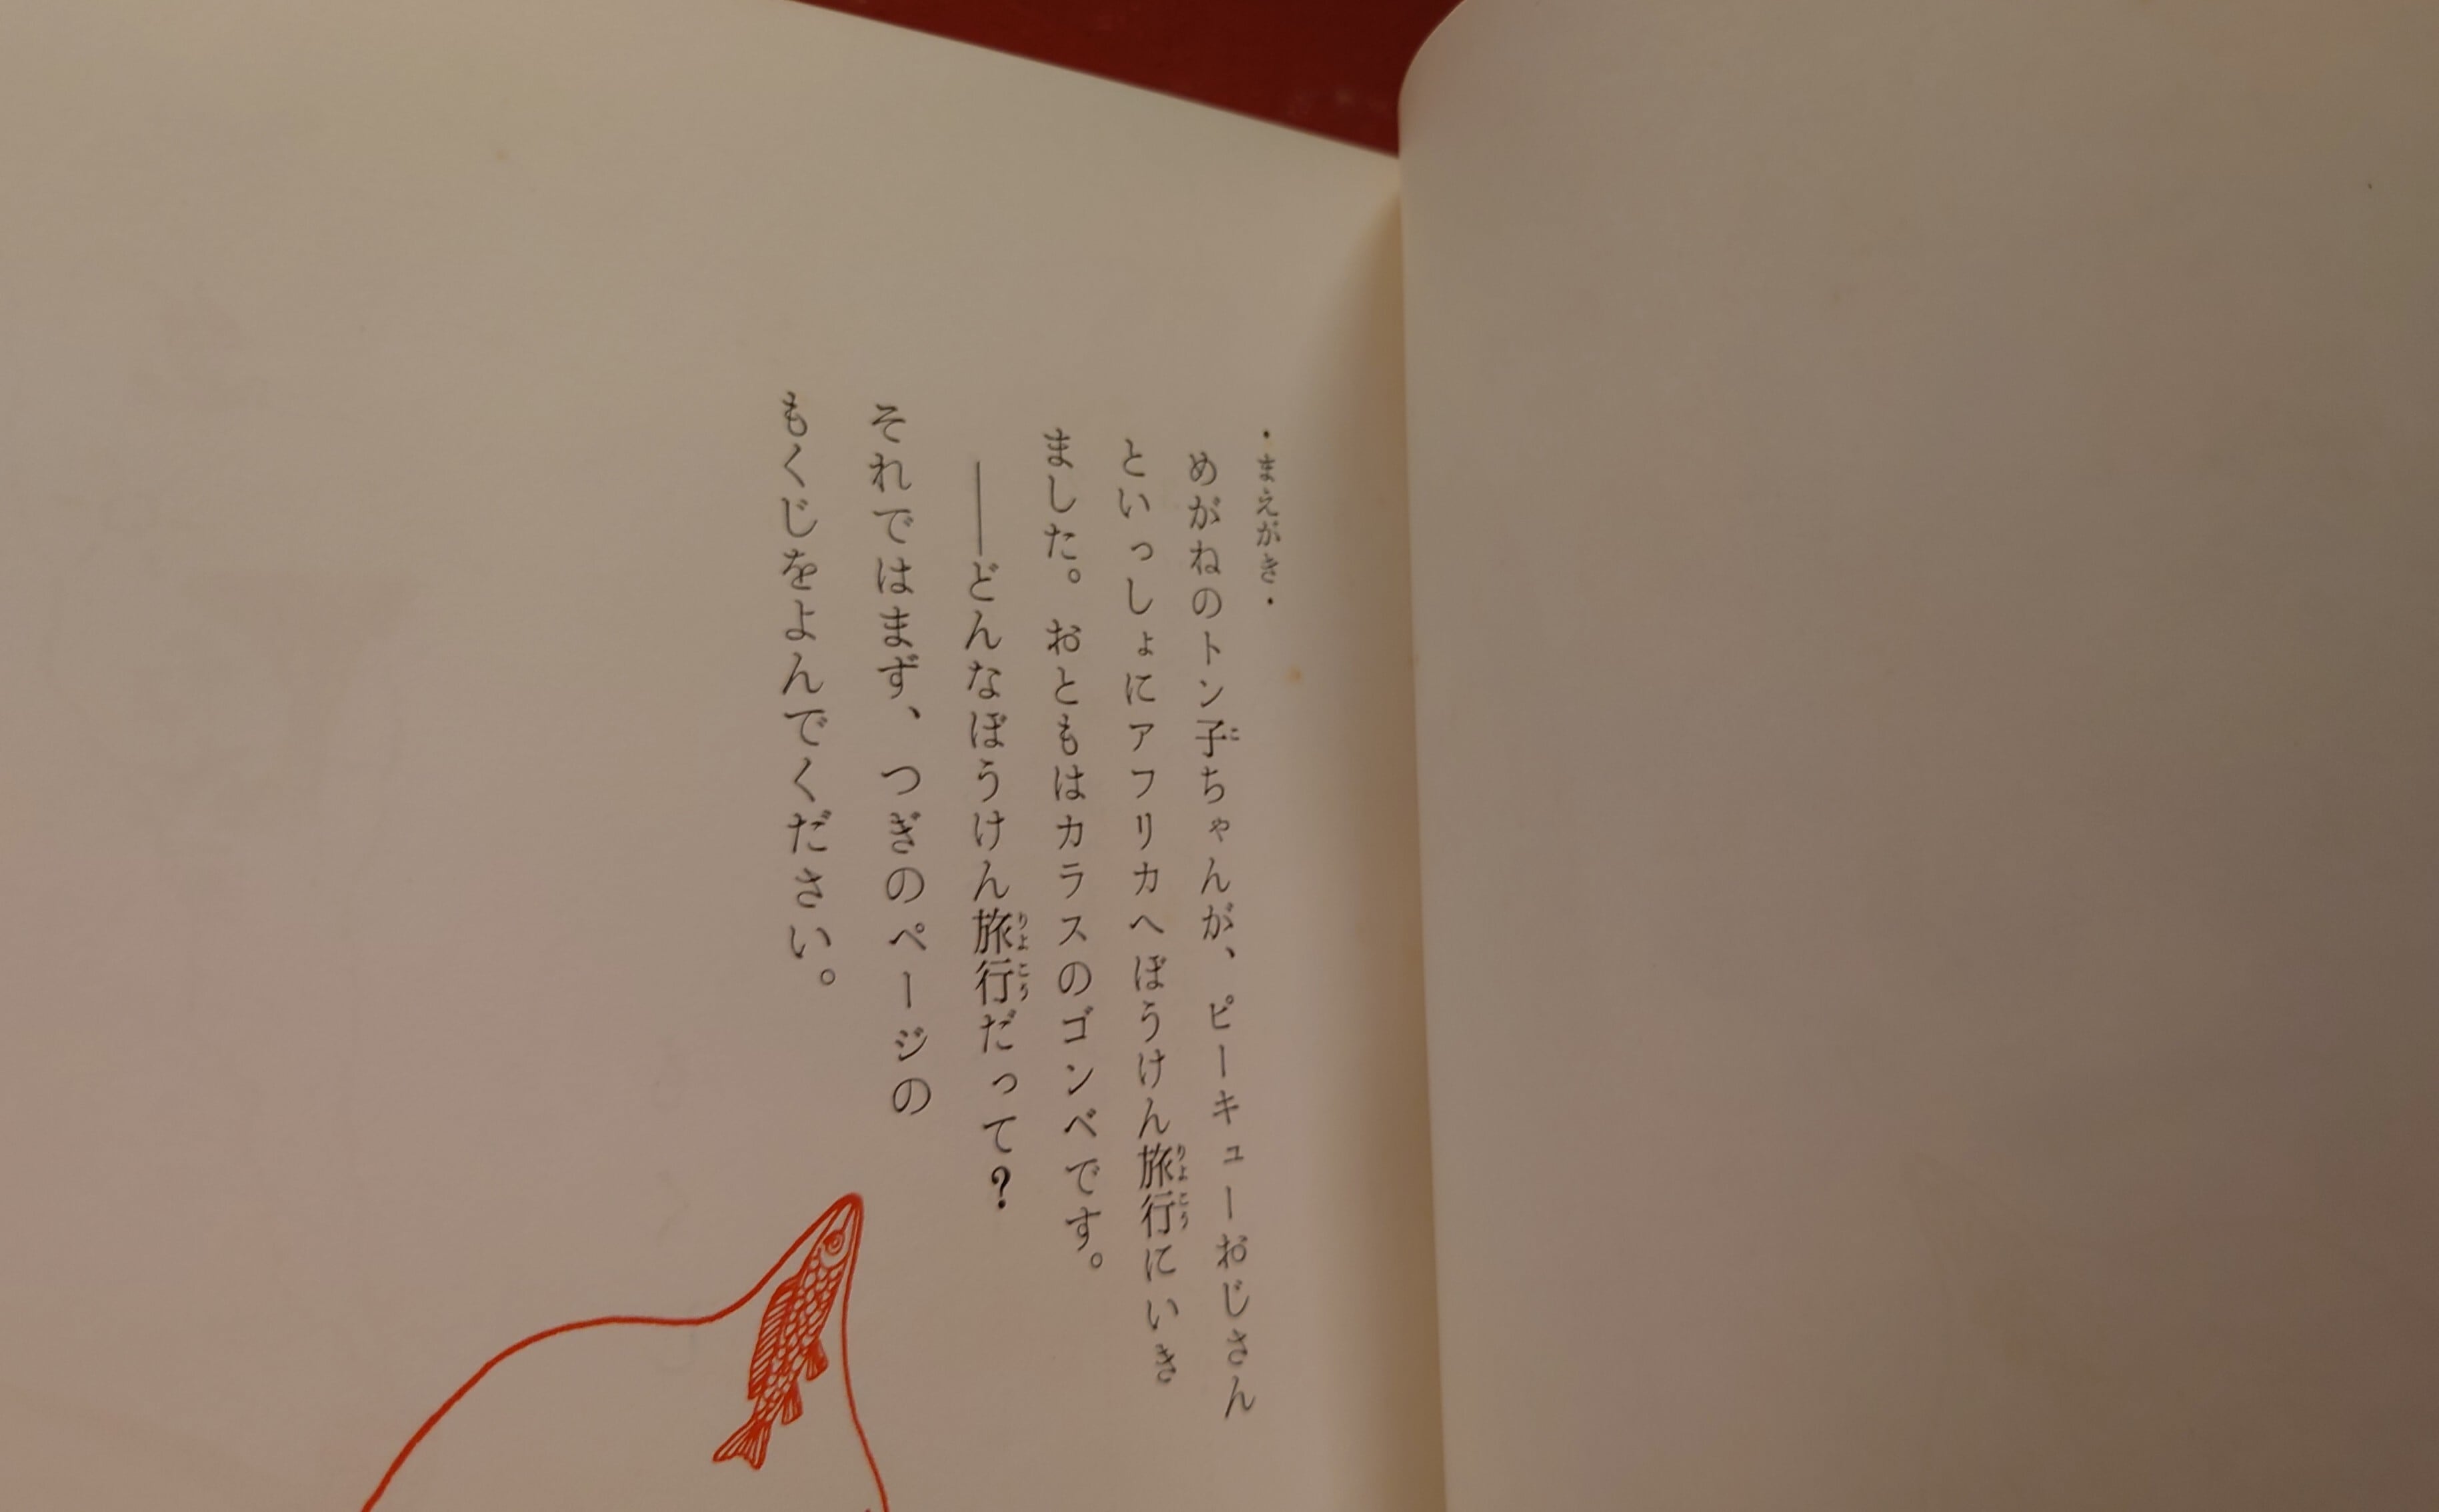 ・まえがき・
めがねのトン子ちゃんが、ピーキューおじさん
といっしょにアフリカへぼうけん旅行にいき
ました。おともはカラスのゴンベです。
――どんなぼうけん旅行だって？
それではまず、つぎのページの
もくじをよんでください。